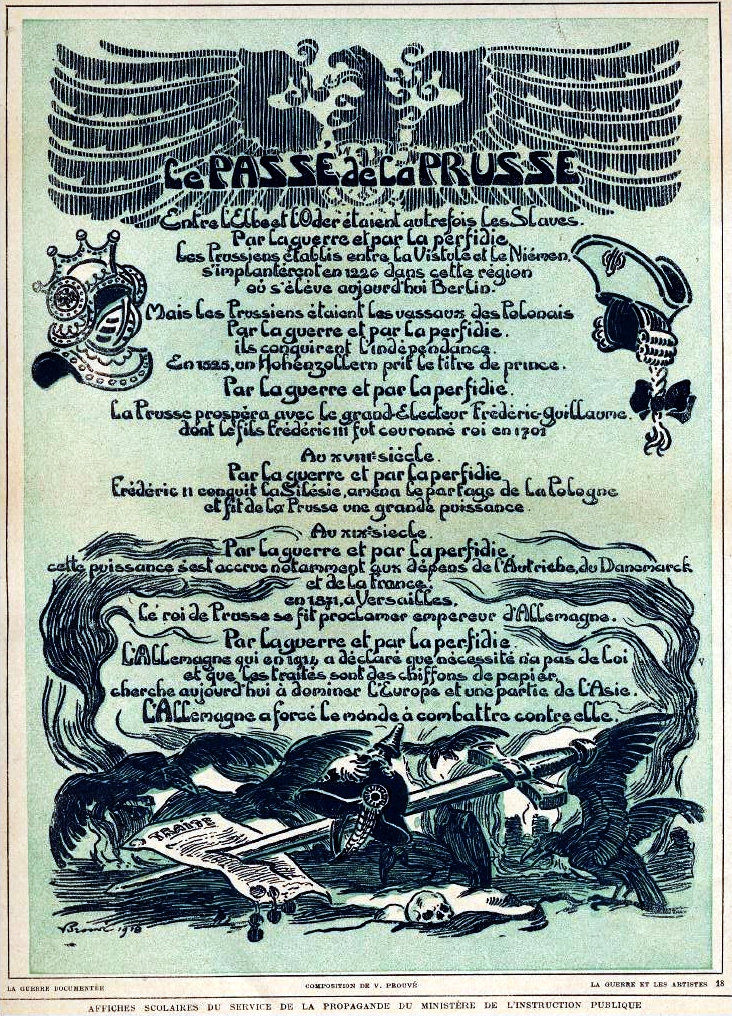 Le PASSÉ de La PRUSSE
Entre l'Elbe et l'Oder étaient autrefois les Slaves.
Par la guerre et par la perfidie
les Prussiens établis entre la Vistule et le Niémen,
s'implantèrent en 1226 dans cette région
où s'élève aujourd'hui Berlin.
Mais les Prussiens étaient les vassaux des Polonais
Par la guerre et par la perfidie.
ils conquirent l'indépendance.
En 1525, un Hohenzollern prit le titre de prince.
Par la guerre et par la perfidie.
La Prusse prospéra avec le grand-Electeur Frédéric-Guillaume.
dont le fils Frédéric III fut couronné roi en 1701
Au XVIIIe siècle.
Par la guerre et par la perfidie
Frédéric II conquit la Silésie, amena le partage de la Pologne
et fit de la Prusse une grande puissance.
Au XIXe siecle.
Par la guerre et par la perfidie,
cette puissance s'est accrue notamment aux dépens de l'Autriche, du Danemarck
et de la France.
en 1871, à Versailles.
Le roi de Prusse se fit proclamer empereur d'Allemagne.
Par la guerre et par la perfidie
L'Allemagne qui en 1914, a déclaré que nécessité n'a pas de loi
et que les traités sont des chiffons de papier,
cherche aujourd'hui à dominer l'Europe et une partie de l'Asie.
L'Allemagne a forcé le monde à combattre contre elle.
TRAITÉ
Prouvé 1918
LA GUERRE DOCUMENTÉE
COMPOSITION DE V. PROUVÉ
LA GUERRE ET LES ARTISTES 18
AFFICHES SCOLAIRES DU SERVICE DE LA PROPAGANDE DU MINISTÈRE DE L'INSTRUCTION PUBLIQUE